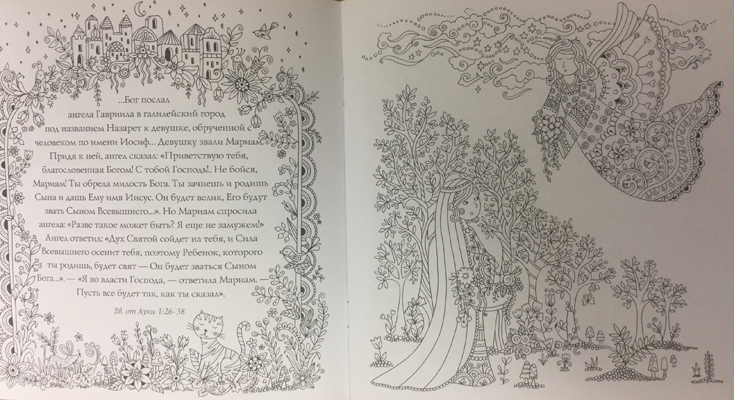 ...Бог послал
ангела Гавриила в галилейский город
под названием Назарет к девушке, обрученной с
человеком по имени Иосиф... Девушку звали Мариам.
Придя к ней, ангел сказал: «Приветствую тебя,
благословенная Богом! С тобой Господь!.. Не бойся,
Мариам! Ты обрела милость Бога. Ты зачнешь и родишь
Сына и дашь Ему имя Иисус. Он будет велик, Его будут
звать Сыном Всевышнего...». Но Мариам спросила
ангела: «Разве такое может быть? Я еще не замужем!»
Ангел ответил: «Дух Святой сойдет на тебя, и Сила
Всевышнего осенит тебя, поэтому Ребенок, которого
ты родишь, будет свят — Он будет зваться Сыном
Бога...». — «Я во власти Господа, — ответила Мариам. —
Пусть все будет так, как ты сказал».
Ев. от Луки 1:26-38